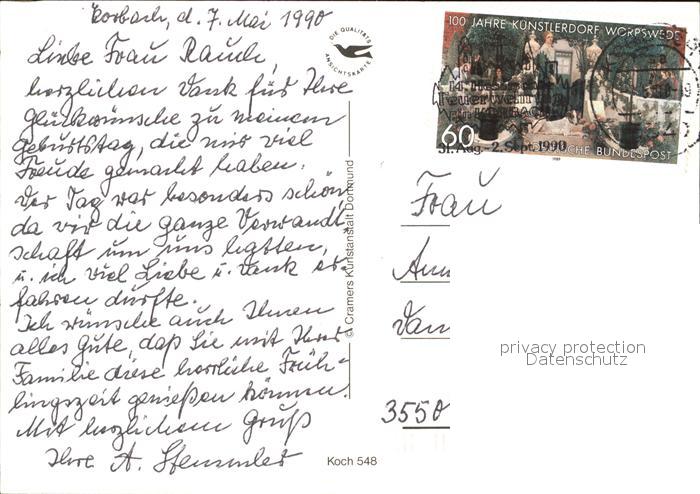 Korbach, d. 7. Mai 1990
Liebe Frau Rauch,
herzlichen Dank für Ihre
Glückwünsche zu meinem
Geburtstag, die mir viel
Freude gemacht haben.
Der Tag war besonders schön
da wir die ganze Verwandt-
schaft um uns hatten,
u. ich viel Liebe u. Dank er-
fahren durfte.
Ich wünsche auch Ihnen
alles Gute, daß Sie mit Ihrer
Familie diese herrliche Früh-
lingszeit genießen können.
Mit herzlichem Gruß
Ihre A. Stemmler
DIE QUALITÄTS
ANSICHTSKARTE
© Cramers Kunstanstalt Dortmund
Koch 548
100 JAHRE KÜNSTLERDORF WORPSWEDE
14. Hessischer
Feuerwehr
60
DEUTSCHE BUNDESPOST
31. Aug. - 2. Sept. 1990
Frau
Ann
Dan
3550
privacy protection
Datenschutz